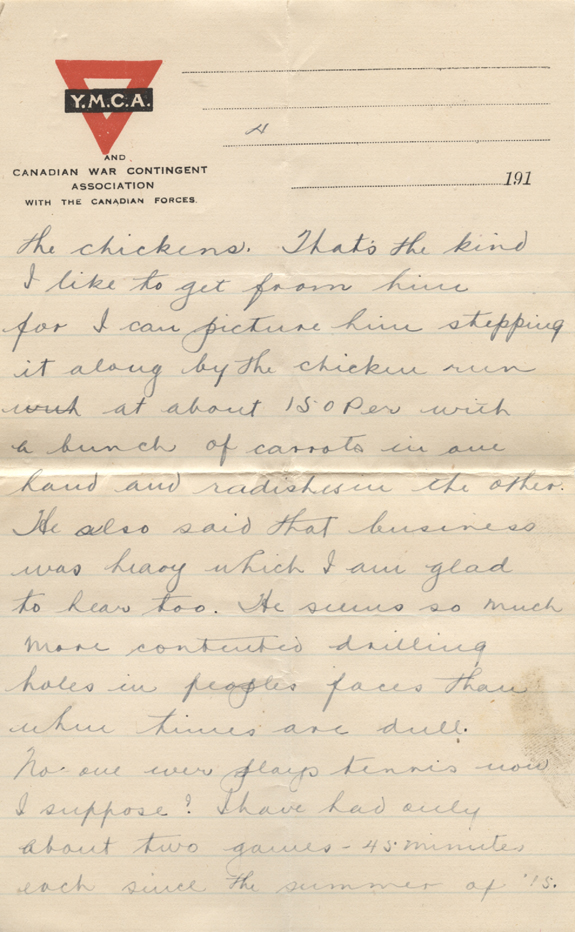 Y.M.C.A.
AND
CANADIAN WAR CONTINGENT
ASSOCIATION
WITH THE CANADIAN FORCES.
191
the chickens. That's the kind
I like to get from him
for I can picture him stepping
it along by the chicken run
with at about 150 Per with
a bunch of carrots in one
hand and radishes in the other.
He also said that business
was heavy which I am glad
to hear too. He seems so much
more contented drilling
holes in peoples faces than
when times are dull.
No one ever plays tennis now
I suppose? I have had only
about two games - 45 minutes
each since the summer of '15.